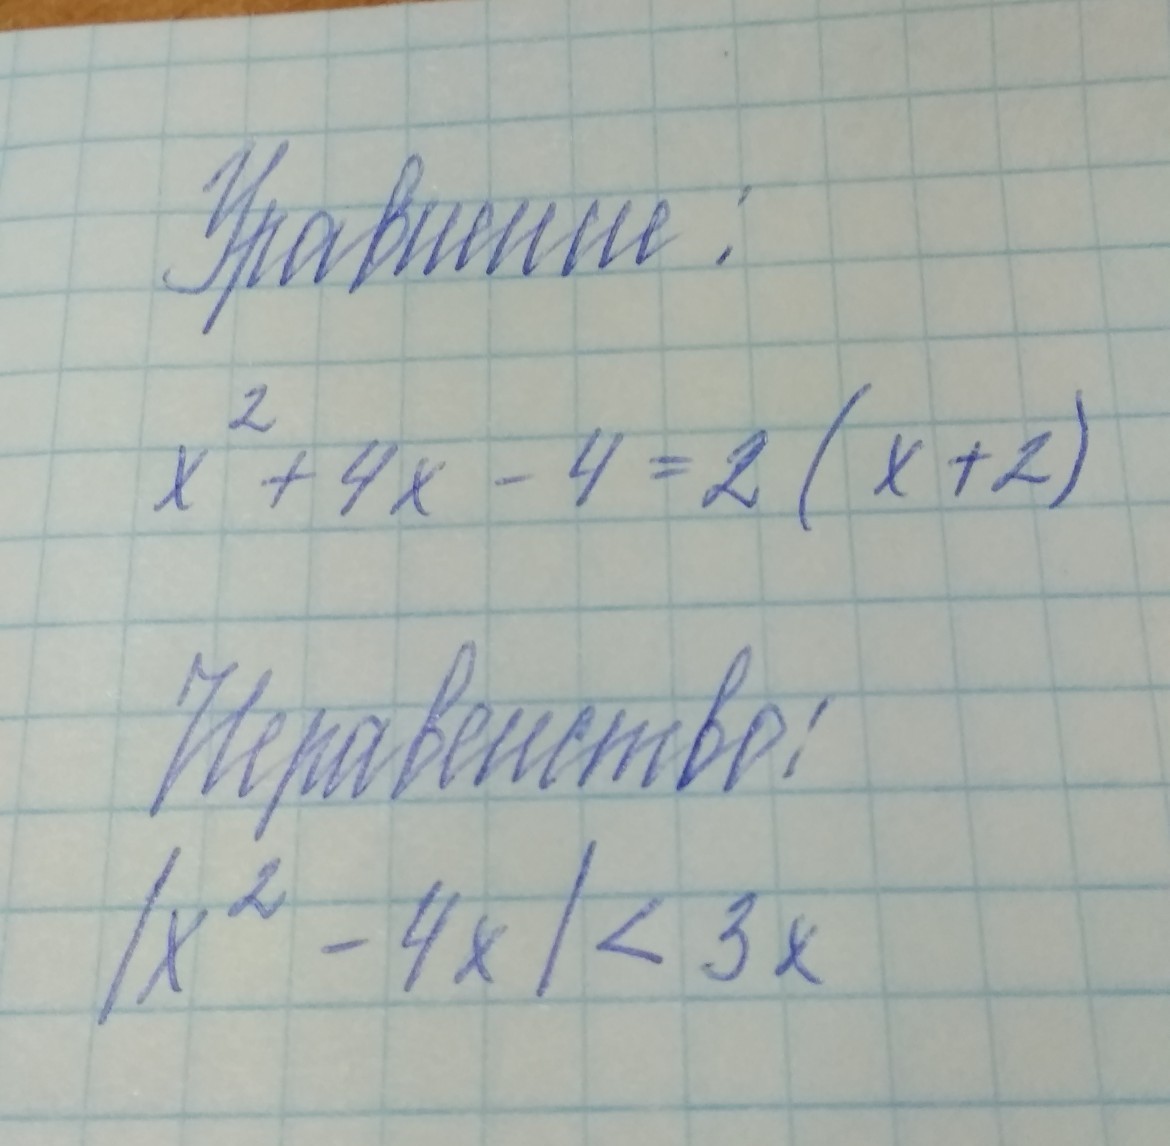 Уравнение:
x² + 4x - 4 = 2 ( x + 2 )
Неравенство:
|x² - 4x| < 3x